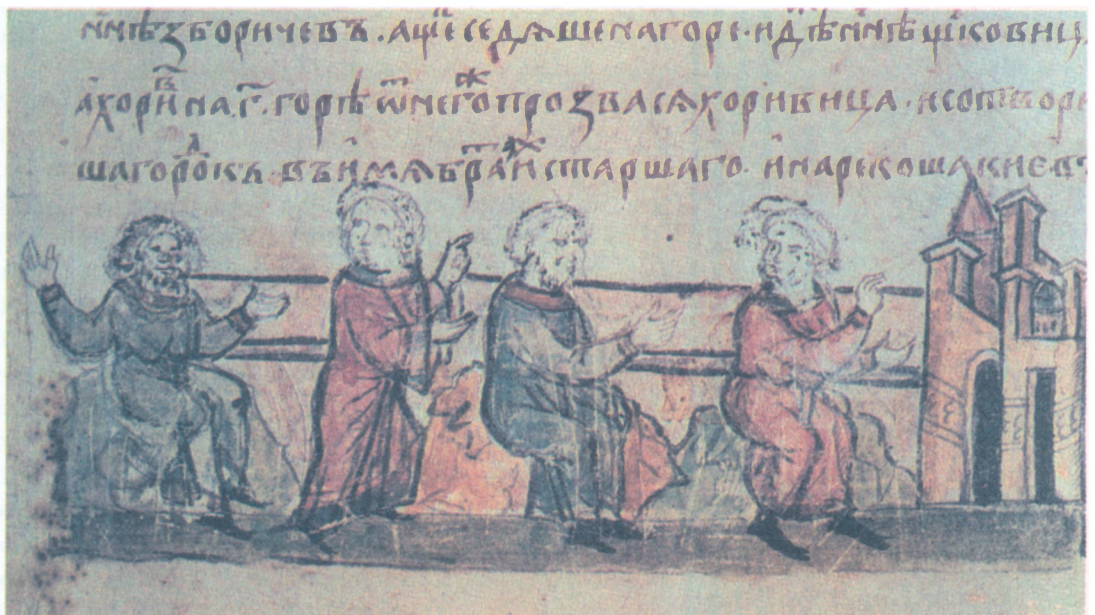 ннѣ зборичевъ . а щекъ седѧше на горе . идѣ ннѣ щековиц
а хоривъ на .г҃. горѣ ѿ негож прозвасѧ хоривица . и сотвори
ша городокъ . въ имѧ брата их старшаго . и нарекоша киевъ